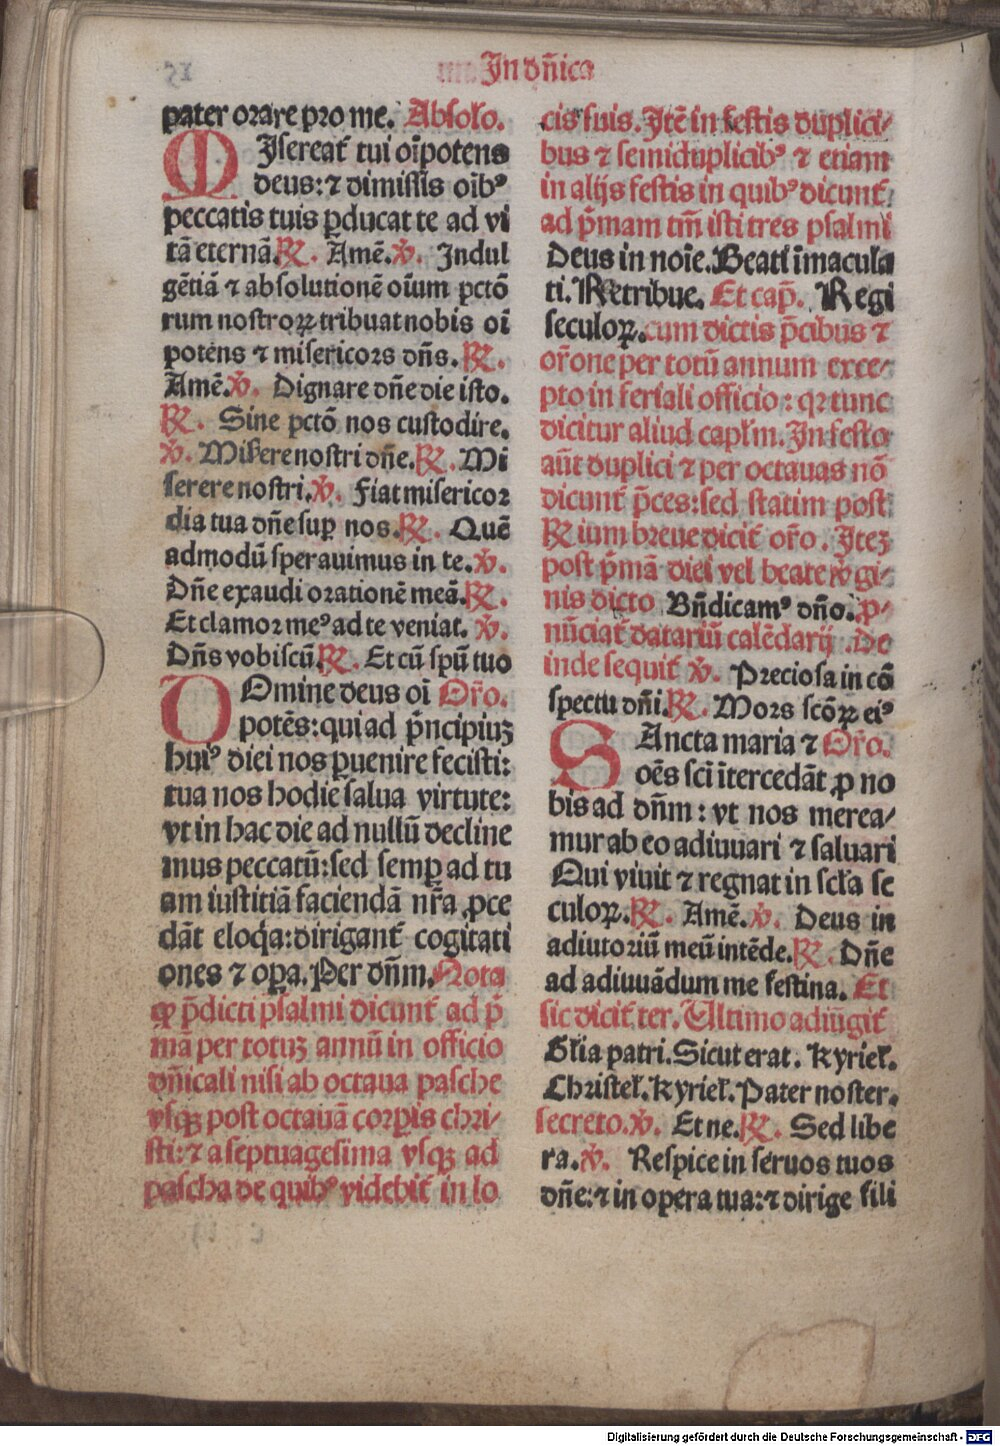 In dñica
pater orare pro me. Absolo.
MIsereat̃ tui oĩpotens
deus: ⁊ dimissis oĩbꝰ
peccatis tuis ꝑducat te ad vi
tã eternã. ℟. Amẽ. ℣. Indul
gẽtiã ⁊ absolutionẽ oĩum pctõ
rum nostroꝝ tribuat nobis oĩ
potẽns ⁊ misericors dñs. ℟.
Amẽ. ℣. Dignare dñe die isto.
℟. Sine pctõ nos custodire.
℣. Misere nostri dñe. ℟. Mi
serere nostri. ℣. Fiat misericor
dia tua dñe suꝑ nos. ℟. Quẽ
admodũ sperauimus in te. ℣.
Dñe exaudi orationẽ meã. ℟.
Et clamor meꝰ ad te veniat. ℣.
Dñs vobiscũ. ℟. Et cũ spũ tuo
DOmine deus oĩ Oŕo.
potẽs: qui ad p̃ncipiuꝫ
huiꝰ diei nos ꝑuenire fecisti:
tua nos hodie salua virtute:
vt in hac die ad nullũ decline
mus peccatũ: sed semꝑ ad tu
am iustitiã faciendã nr̃a ꝓce
dãt eloq̃a: dirigant̃ cogitati
ones ⁊ oꝑa. Per dñm. Nota
ꝙ p̃dicti psalmi dicunt̃ ad p̃
mã per totuꝫ annũ in officio
dñicali nisi ab octaua pasche
vsqꝫ post octauã corꝑis chri-
sti: ⁊ a septuagesima vsqꝫ ad
pascha de quibꝰ videbit̃ in lo
cis suis. Itẽ in festis duplici-
bus ⁊ semiduplicibꝰ ⁊ etiam
in alijs festis in quibꝰ dicunt̃
ad p̃mam tm̃ isti tres psalmi
Deus in noĩe. Beati ĩmacula
ti. Retribue. Et cap̃. Regi
seculoꝝ. cum dictis p̃cibus ⁊
oŕone per totũ annum exce-
pto in feriali officio: qꝛ tunc
dicitur aliud capłm. In festo
aũt duplici ⁊ per octauas nõ
dicunt̃ p̃ces: sed statim post
℟ium breue dicit̃ oŕo. Iteꝫ
post p̃mã diei vel beate ℣gi-
nis dicto Bñdicamꝰ dño. ꝓ-
nũciat̃ datariũ calẽdarij. De
inde sequit̃ ℣. Preciosa in cõ
spectu dñi. ℟. Mors scõꝝ eiꝰ
SAncta maria ⁊ Oŕo.
oẽs sci ĩtercedãt ꝓ no
bis ad dñm: vt nos merea-
mur ab eo adiuuari ⁊ saluari
Qui viuit ⁊ regnat in scła se
culoꝝ. ℟. Amẽ. ℣. Deus in
adiutoriũ meũ intẽde. ℟. Dñe
ad adiuuãdum me festina. Et
sic dicit̃ ter. Ultimo adiũgit̃
Głia patri. Sicut erat. Kyrieł.
Christeł. Kyrieł. Pater noster.
secreto. ℣. Et ne. ℟. Sed libe
ra. ℣. Respice in seruos tuos
dñe: ⁊ in opera tua: ⁊ dirige fili
Digitalisierung gefördert durch die Deutsche Forschungsgemeinschaft - DFG